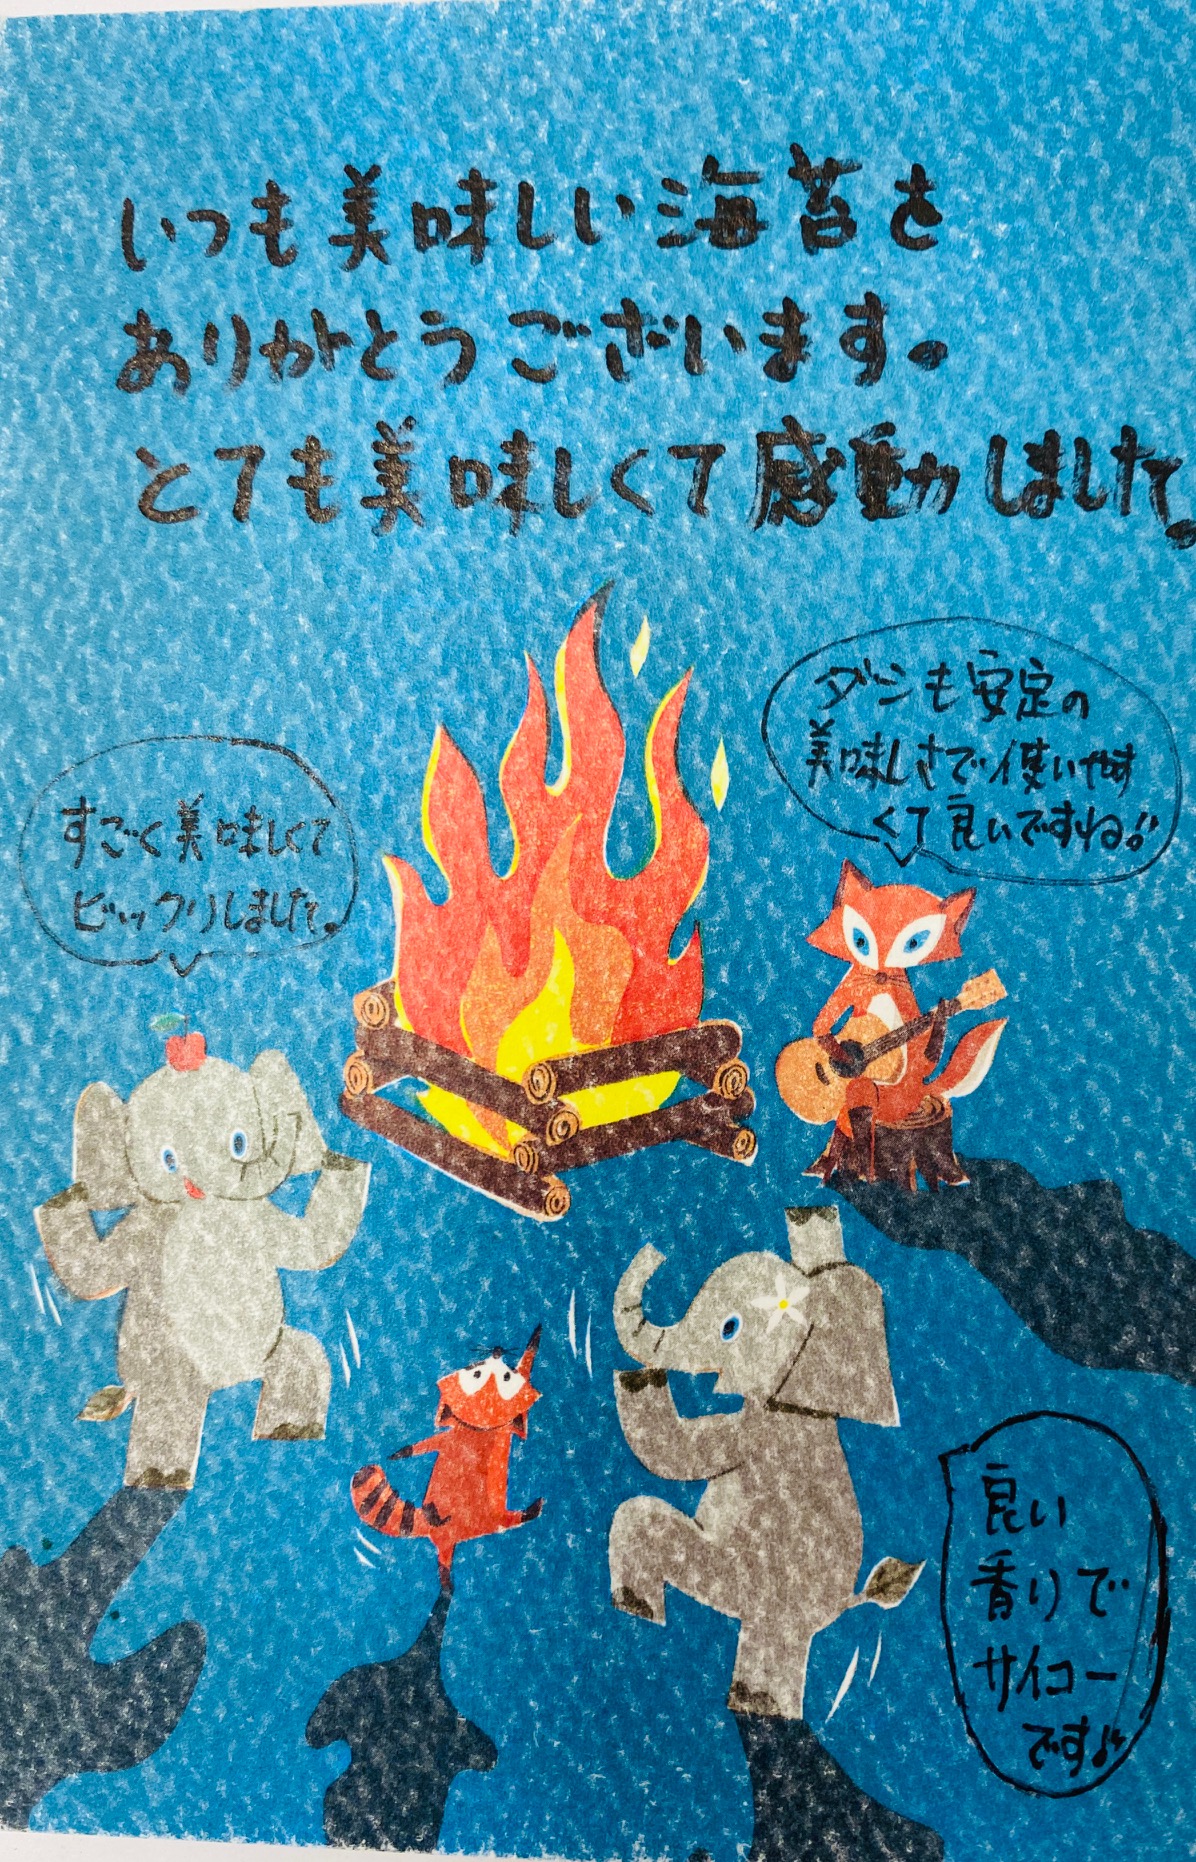 いつも美味しい海苔を
ありがとうございます。
とても美味しくて感動しました。
ダシも安定の
美味しさで使いやす
くて良いですね!!
すごく美味しくて
ビックリしました。
良い
香りで
サイコー
です!!